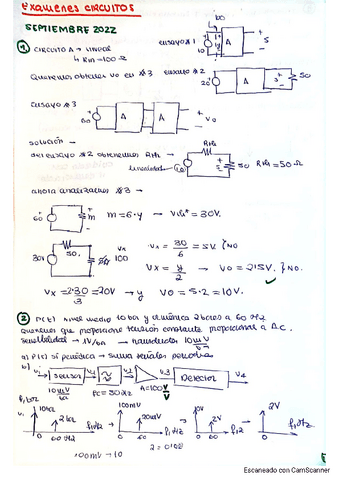 EXAMENES CIRCUITOS
SEPTIEMBRE 2022
① CIRCUITO A → LINEAL
Rin = 100 Ω
ensayo #1
10
A
5
Queremos obtener vo en #3
ensayo #2
20
A
50
ensayo #3
60
A
A
vo
SOLUCIÓN →
del ensayo #2 obtenemos Rth
linealidad
10
Rth
50
Rth = 50 Ω
ahora analizamos #3 →
60
m
m = 6·y → Vth* = 30V.
30
50
Vx
100
Vx = 30/6 = 5V } NO
Vx = y/2 → Vo = 2'5V } NO.
Vx = 2·30/3 = 20V → y
Vo = 5·2 = 10V.
② P(t) nivel medio 10 bar y
2 bares a 60 Hz
queremos que proporcione tensión constante proporcional a AC.
sensibilidad → 1V/bar →
10 mV/bar
a) P(t) sí periódica → suma señales periódicas
b)
v1
SENSOR
v2
A=100 V/V
v3
Detector
v4
10 mV/bar
fc = 30 Hz
P, bar
10bar
2bar
0
60
f, Hz
100mV
20mV
0
60
f, Hz
10V
2V
0
60
f, Hz
2V
0
f, Hz
100mV → 10
Escaneado con CamScanner